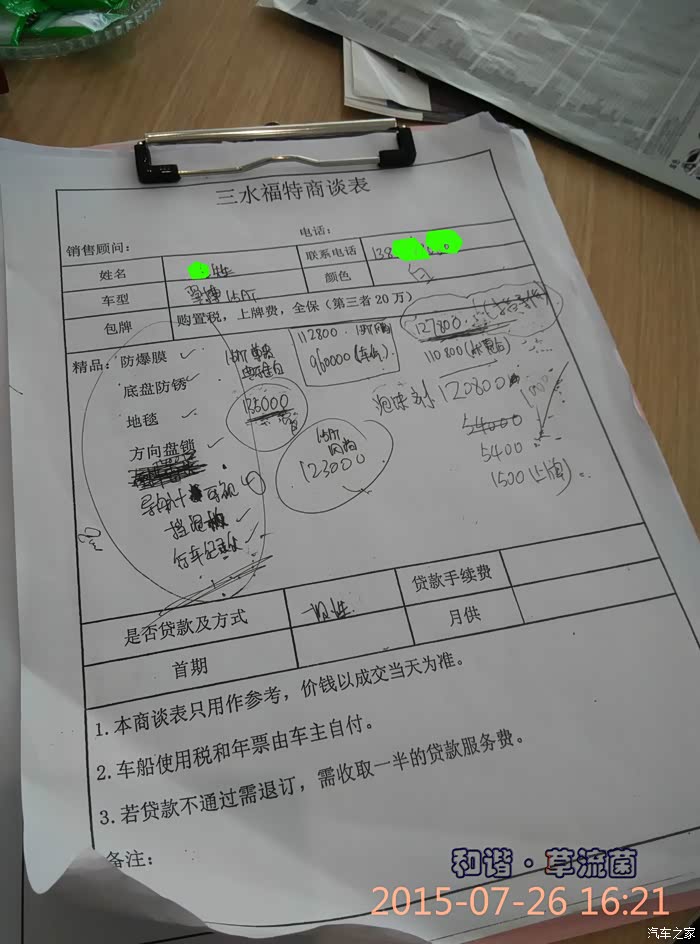 三水福特商谈表
销售顾问:
电话:
姓名
联系电话 138
车型 1.5AT
颜色 白
包牌 购置税，上牌费，全保（第三者20万）
精品: 防爆膜 ✓
底盘防锈 ✓
地毯 ✓
方向盘锁 ✓
导航+
挡泥板 ✓
行车记录仪 ✓
135000
112800
960000
127800
110800
120800
123000
54000
5400
1500(上牌)
是否贷款及方式 一次性
贷款手续费
首期
月供
1.本商谈表只用作参考，价钱以成交当天为准。
2.车船使用税和年票由车主自付。
3.若贷款不通过需退订，需收取一半的贷款服务费。
备注:
和谐·草流菌
2015-07-26 16:21
汽车之家